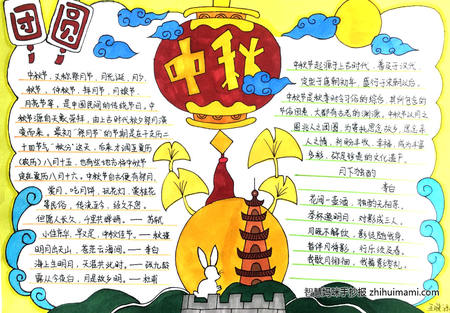 团圆
中秋
中秋节，又称祭月节、月光诞、月夕、
秋节、仲秋节、拜月节、月娘节、
月亮节等，是中国民间的传统节日。中
秋节源自天象崇拜，由上古时代秋夕祭月演
变而来。最初"祭月节"的节期是在干支二
十四节气"秋分"这天，后来才调至夏历
(农历)八月十五，也有些地方将中秋节
定在夏历八月十六。中秋节自古便有祭月、
赏月、吃月饼、玩花灯、赏桂花
等民俗，传来至今，经久不息。
但愿人长久，千里共婵娟。——苏轼
小住京华，早又是，中秋佳节。——秋瑾
明月出天山，苍茫云海间。——李白
海上生明月，天涯共此时。——张九龄
露从今夜白，月是故乡明。——杜甫
中秋节起源于上古时代，普及于汉代，
定型于唐朝初年，盛行于宋朝以后。
中秋节是秋季时令习俗的综合，其所包含的
节俗因素，大都有古老的渊源。中秋节以月之
圆兆人之团圆，为寄托思念故乡，思念亲
人之情，祈盼丰收、幸福，成为丰富
多彩、弥足珍贵的文化遗产。
月下独酌
李白
花间一壶酒，独酌无相亲。
举杯邀明月，对影成三人。
月既不解饮，影徒随我身。
暂伴月将影，行乐须及春。
我歌月徘徊，我舞影零乱。
智慧妈妈手抄报 zhihuimami.com